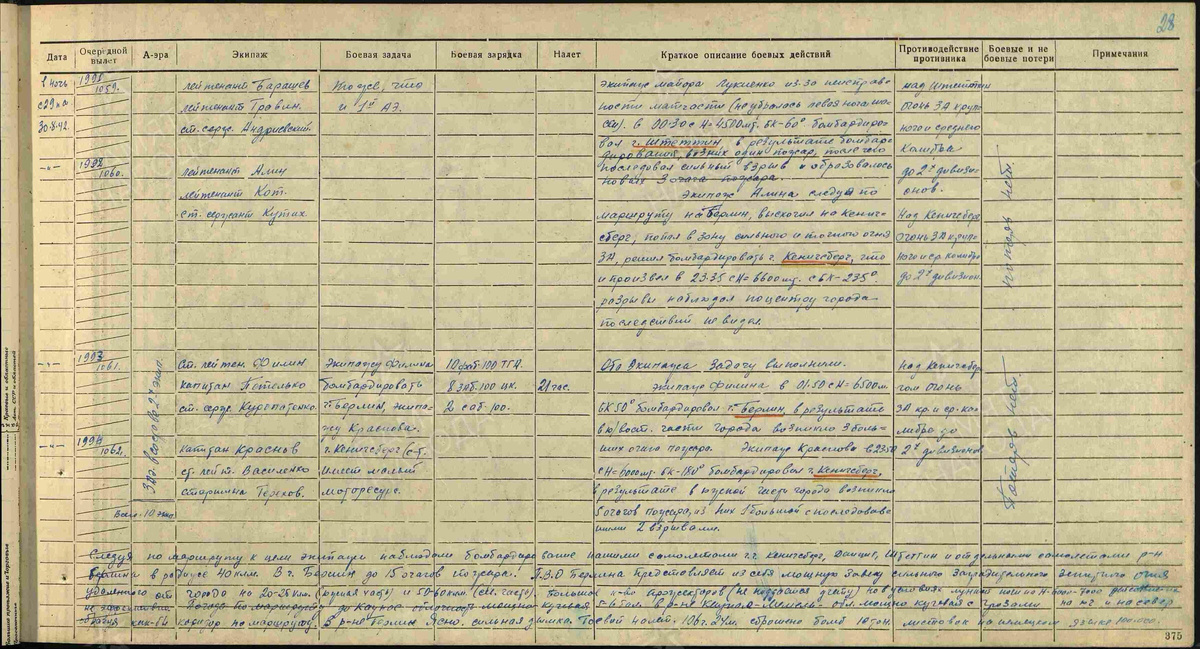 28
Дата Очередной вылет А-эра Экипаж Боевая задача Боевая зарядка Налет Краткое описание боевых действий Противодействие противника Боевые и не боевые потери Примечания
В ночь с 29 на 30.8.42.
1991 1059.
лейтенант Барашев
лейтенант Травин.
ст. серж. Андриевский.
То же, что
и 1й АЭ.
Экипаж майора Лукиенко из-за неисправ-
ности матчасти (не убралась левая нога ша-
сси). в 00-30 с Н=4500мт. БК-60° бомбардиро-
вал г. Штеттин, в результате бомбар-
дирования, возник один пожар, после чего
последовал сильный взрыв и образовалось
новых 3 очага пожара.
над Штеттин
огонь ЗА круп-
ного и среднего
калибра
до 2х дивизи-
онов.
потерь нет.
-"- 1992 1060.
лейтенант Алин
лейтенант Кот.
ст. сержант Кутих.
Экипаж Алина следуя по
маршруту на Берлин, выскочил на Кениг-
сберг, попал в зону сильного и точного огня
ЗА, решил бомбардировать г. Кенигсберг, что
и произвел в 23-35 с Н=6600мт. с БК-235°.
разрывы наблюдал по центру города
последствий не видел.
Над Кенигсберг
огонь ЗА круп-
ного и ср. калибра
до 2х дивизион.
-"- 1993 1061.
3 АЭ. 2 эки.
ст. лейтен. Филин
капитан Петелько
ст. серж. Куропатенко.
Экипажу Филина
бомбардировать
г. Берлин, экипа-
жу Краснова.
г. Кенигсберг (с-т.
имеет малый
моторесурс.
10 фаб-100 ТГА.
8 заб-100 цк.
2 саб-100.
21 час.
Оба экипажа задачу выполнили.
Экипаж Филина в 01-50 с Н=6500м.
БК 50° бомбардировал г. Берлин, в результате
в ю/вост. части города возникло 3 боль-
ших очага пожара. Экипаж Краснова в 23-50
с Н= мт. БК-180° бомбардировал г. Кенигсберг,
в результате в южной части города возникло
5 очагов пожара, из них 1 большой с последовав-
шими 2 взрывами.
Над Кенигсбер-
гом огонь
ЗА кр. и ср. ка-
либра до
2х дивизионов
Потерь нет.
-"- 1994 1062.
капитан Краснов
ст. лей т. Василенко
старшина Терехов.
Всего-10 эки.
Следуя по маршруту к цели экипажи наблюдали бомбардирование нашими самолетами г.г. Кенигсберг, Данциг, Штеттин и отдельными самолетами р-н
Берлина в радиусе 40 клм. В г. Берлин до 15 очагов пожара. П.В.О Берлина представляет из себя мощную завесу сильного заградительного зенитного огня
удаленного от города на 20-25 клм. (южная часть) и 50-60 клм (сев. часть). Большое к-во прожекторов
Погода по маршруту до Каунас облачность мощно кучевая 5-6 балл. в р-не обл. мощно кучевая с грозами
в р-не Берлин ясно. сильная дымка. Боевой налет. 106 г. 24м. сброшено бомб 10 тон. листовок на немецком языке 100.000.
375